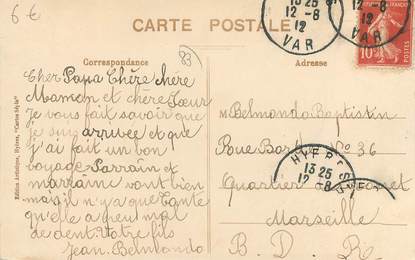 6 €
CARTE POSTALE
13 25
12-8
12
VAR
12-8
12
VAR
10c
83
Correspondance
Adresse
Cher Papa Chère Mère
Maman et chère Sœur
Je vous fait savoir que
je suis arrivée et que
j'ai fait un bon
voyage Parrain et
marraine vont bien
mais il n'y a que Tante
qu'elle a peu mal
de dent Votre fils
Jean Belmondo
M Belmondo Baptistin
Rue Bort No 36
Quartier
Marseille
B. D. R.
HYERES
13 25
12-8
Edition Artistique, Hyères, "Carlos Idyla"